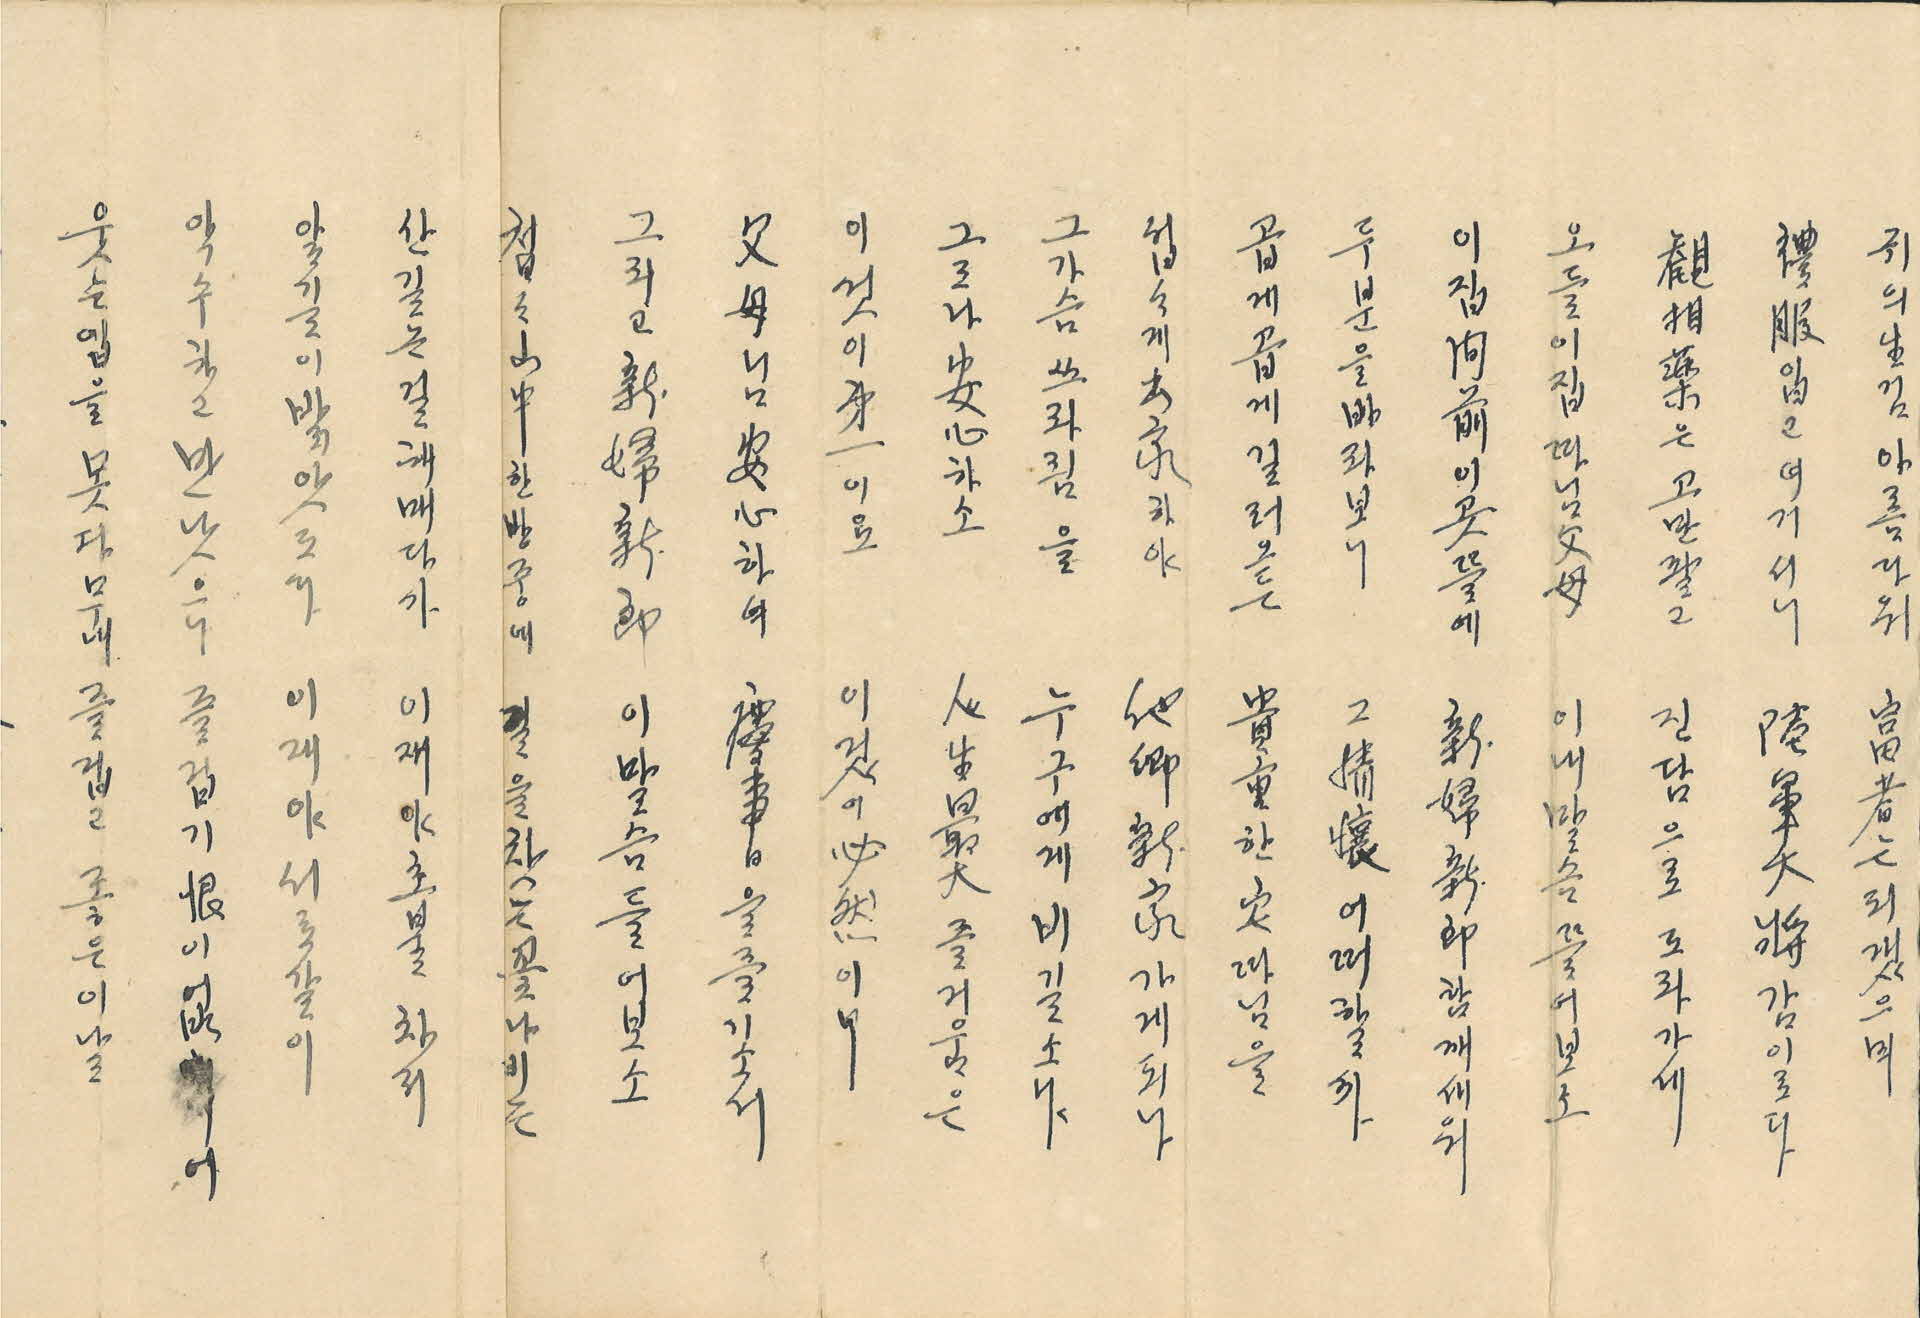 귀의生김 아름다워 富者는 되갰으며
禮服입고 여기서니 陸軍大將감이로다
觀相藥은 고만팔고 진담으로 도라가세
오들이집 따님父母 이내말슴 들어보소
이집 問前 이곳 뜰에 新婦新郞 함깨 세워
두분을 바라보니 그 情懷 어떠할까
곱게곱게 길러온 貴重한 안따님을
섭々게 出家하야 他鄕 新家 가게되나
그가슴 쓰라림을 누구에게 비길소냐
그르나 安心하소 人生最大 즐거움은
이것이 第一이요 이것이 必然이니
父母님 安心하여 慶事을 즐기소서
그리고 新婦新郞 이말슴 들어보소
첩々山中 한밤중에 길을 찾는 꽃나비는
산길는길 해매다가 이재야 초불 차저
앞길이 밝앗도다 이재야 서로 같이
약수하고 만낫으니 즐겁기 恨이 없어
웃는 입을 못다무내 즐겁고 좋은 이날